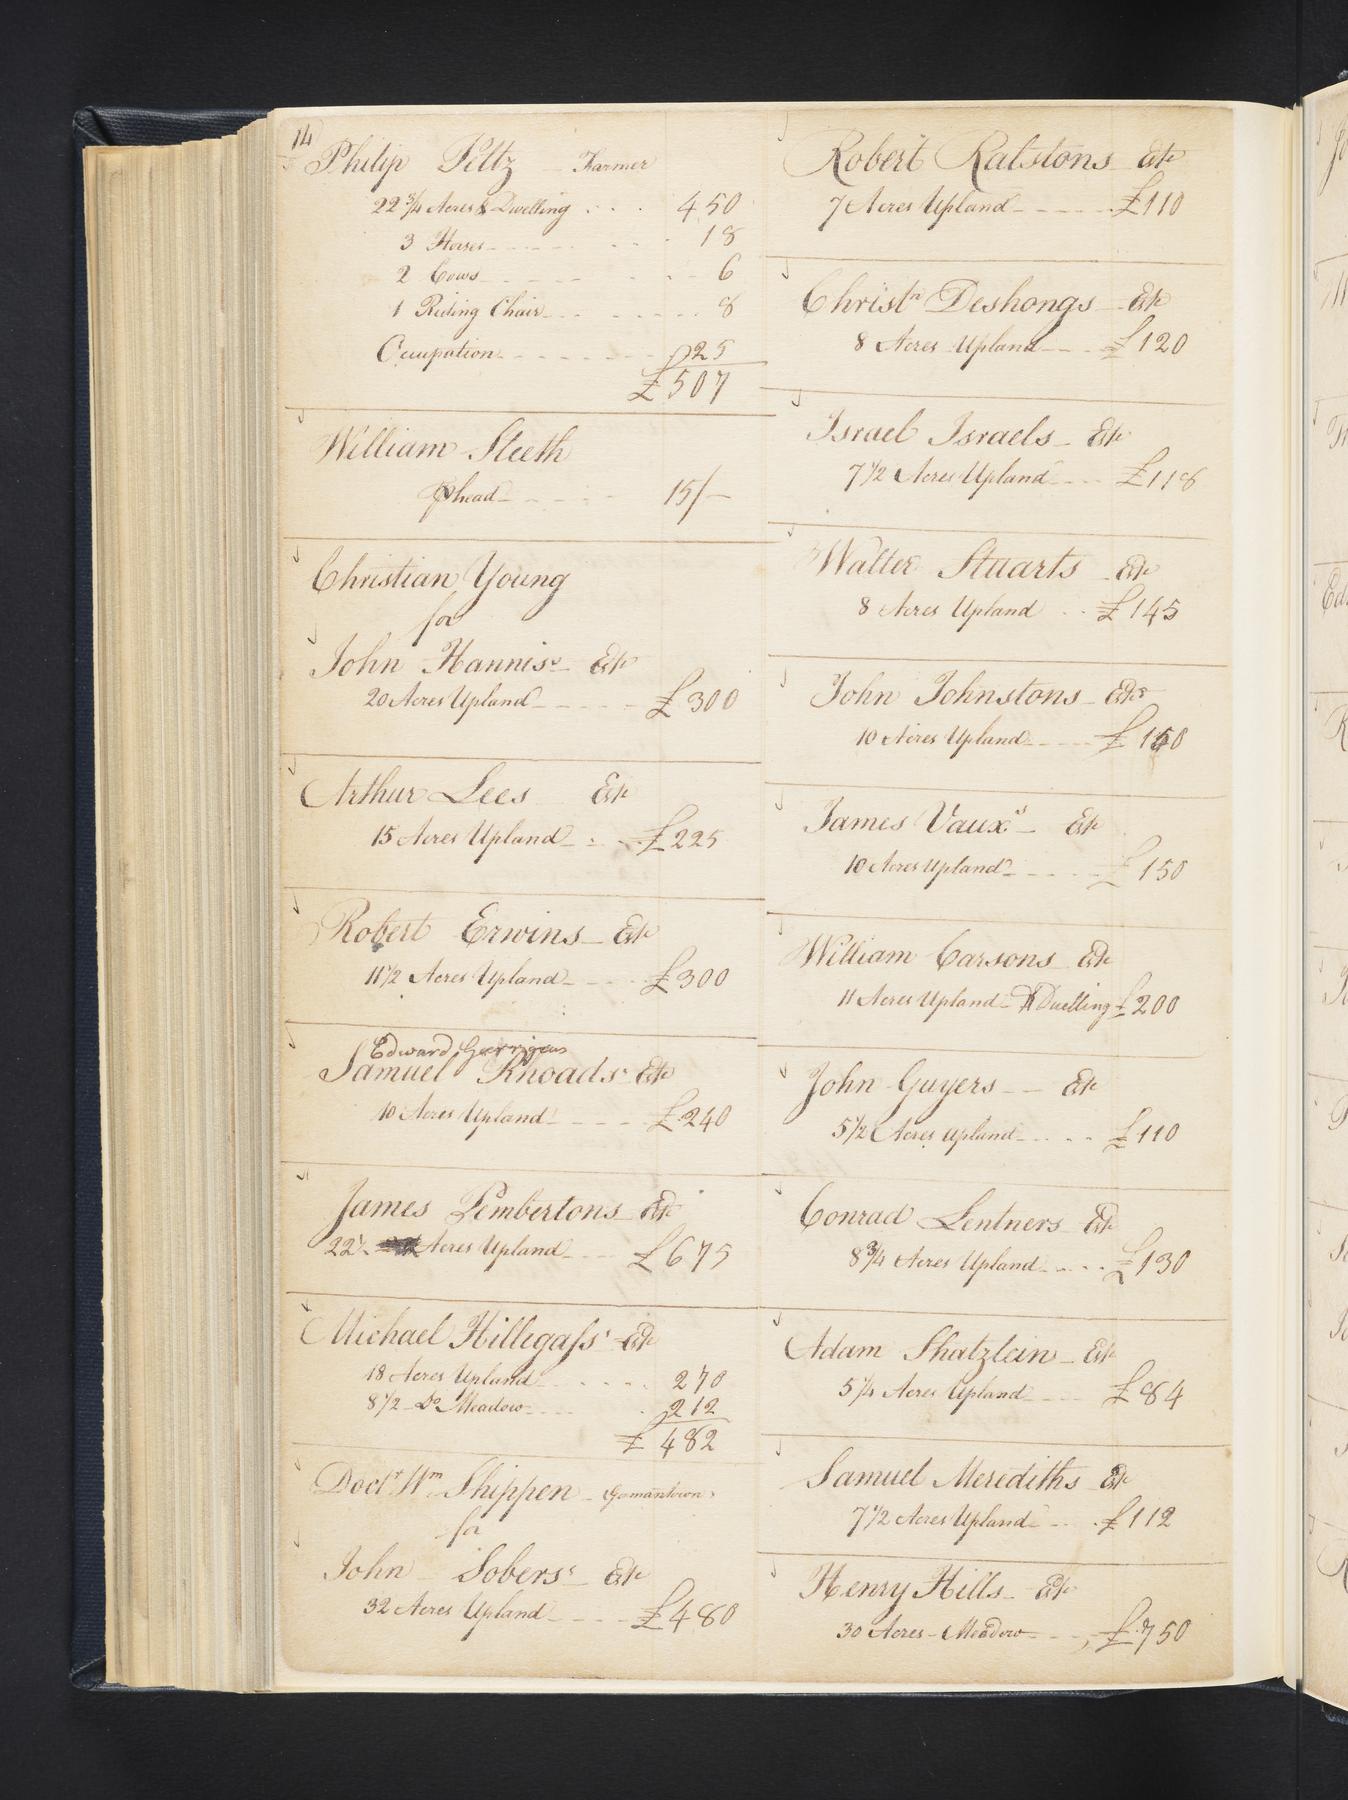 14
Philip Peltz Farmer
22 3/4 Acres & Dwelling 450
3 Horses 18
2 Cows 6
1 Riding Chair 8
Occupation 25
£507
William Sleeth
⅌ head 15/-
Christian Young
for
John Hannis's Est
20 Acres Upland £300
Arthur Lees Est
15 Acres Upland £225
Robert Erwins Est
11 1/2 Acres Upland £300
Edward
Samuel Rhoads' Est
10 Acres Upland £240
James Pembertons Est
22 1/2 Acres Upland £675
Michael Hillegass' Est
18 Acres Upland 270
8 1/2 Do Meadow 212
£482
Doctr Wm Shippen Germantown
for
John Sobers's Est
32 Acres Upland £480
Robert Ralstons Est
7 Acres Upland £110
Christn Deshongs Est
8 Acres Upland £120
Israel Israels Est
7 1/2 Acres Upland £118
Walter Stuarts Est
8 Acres Upland £145
John Johnstons Est
10 Acres Upland £150
James Vaux's Est
10 Acres Upland £150
William Carsons Est
11 Acres Upland & Dwelling £200
John Guyers Est
5 1/2 Acres Upland £110
Conrad Lentners Est
8 3/4 Acres Upland £130
Adam Shatzlein Est
5 1/4 Acres Upland £84
Samuel Merediths Est
7 1/2 Acres Upland £112
Henry Hills Est
30 Acres Meadow £750